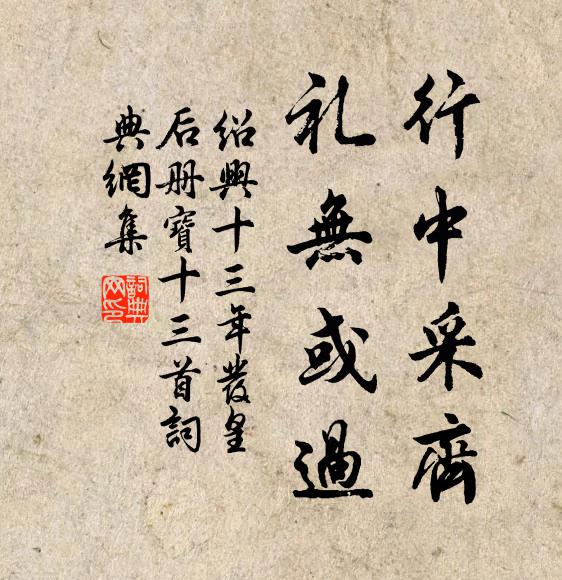 行中采齊
礼無或過
紹興十三年發皇
后册寶十三首詞
典網集
詞典
网印